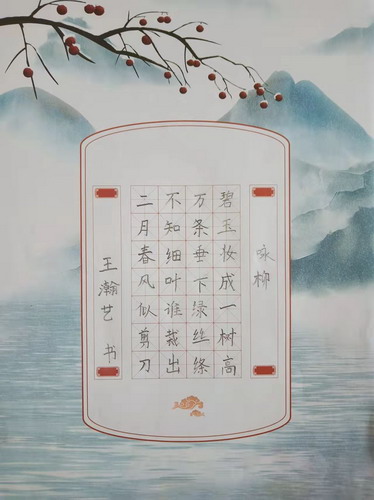 咏柳
碧玉妆成一树高
万条垂下绿丝绦
不知细叶谁裁出
二月春风似剪刀
王瀚艺 书